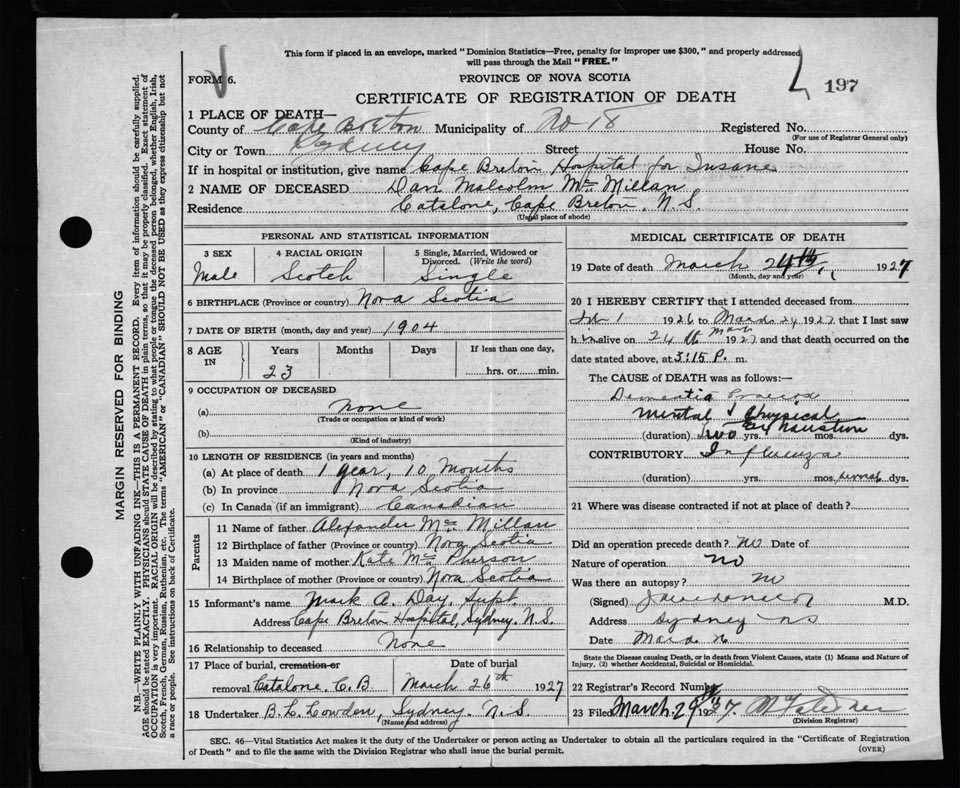 This form if placed in an envelope, marked "Dominion Statistics—Free, penalty for improper use $300," and properly addressed
will pass through the Mail "FREE."
FORM 6.
PROVINCE OF NOVA SCOTIA
197
CERTIFICATE OF REGISTRATION OF DEATH
1 PLACE OF DEATH—
County of Cape Breton Municipality of No 18 Registered No.
(For use of Registrar General only)
City or Town Sydney Street House No.
If in hospital or institution, give name Cape Breton Hospital for Insane
2 NAME OF DECEASED Dan Malcolm McMillan
Residence Catalone, Cape Breton, N.S.
(Usual place of abode)
PERSONAL AND STATISTICAL INFORMATION
3 SEX 4 RACIAL ORIGIN 5 Single, Married, Widowed or
Divorced. (Write the word)
Male Scotch Single
6 BIRTHPLACE (Province or country) Nova Scotia
7 DATE OF BIRTH (month, day and year) 1904
8 AGE IN Years Months Days If less than one day,
23 hrs. or min.
9 OCCUPATION OF DECEASED
(a) None
(Trade or occupation or kind of work)
(b)
(Kind of industry)
10 LENGTH OF RESIDENCE (in years and months)
(a) At place of death 1 year, 10 months
(b) In province Nova Scotia
(c) In Canada (if an immigrant) Canadian
Parents
11 Name of father Alexander McMillan
12 Birthplace of father (Province or country) Nova Scotia
13 Maiden name of mother Kate McPherson
14 Birthplace of mother (Province or country) Nova Scotia
15 Informant's name Mark A. Day, Supt.
Address Cape Breton Hospital, Sydney. N.S.
16 Relationship to deceased None
17 Place of burial, cremation or Date of burial
removal Catalone. C.B March 26th 1927
18 Undertaker B.L. Lowden, Sydney. N.S.
(Name and address)
MEDICAL CERTIFICATE OF DEATH
19 Date of death March 24th, 1927
(Month, day and year)
20 I HEREBY CERTIFY that I attended deceased from
1 1926 to March 24 1927 that I last saw
him alive on 24th March 1927 and that death occurred on the
date stated above, at 3:15 P. m.
The CAUSE of DEATH was as follows:—
Dementia Praecox
Mental & Physical
Exhaustion
(duration) Two yrs. mos. dys.
CONTRIBUTORY Influenza
(duration) yrs. mos. several dys.
21 Where was disease contracted if not at place of death?
Did an operation precede death? No Date of
Nature of operation No
Was there an autopsy? No
(Signed) M.D.
Address Sydney NS
Date March 26
State the Disease causing Death, or in death from Violent Causes, state (1) Means and Nature of
Injury, (2) whether Accidental, Suicidal or Homicidal.
22 Registrar's Record Number
23 Filed March 29th 1927.
(Division Registrar)
SEC. 46—Vital Statistics Act makes it the duty of the Undertaker or person acting as Undertaker to obtain all the particulars required in the "Certificate of Registration
of Death" and to file the same with the Division Registrar who shall issue the burial permit.
(OVER)
MARGIN RESERVED FOR BINDING
N.B.—WRITE PLAINLY WITH UNFADING INK—THIS IS A PERMANENT RECORD. Every item of information should be carefully supplied.
AGE should be stated EXACTLY. PHYSICIANS should STATE CAUSE OF DEATH in plain terms, so that it may be properly classified. Exact statement of
OCCUPATION is very important. RACIAL ORIGIN will be described by stating to what people or tongue the deceased person belonged, whether English, Irish,
Scotch, French, German, Russian, Ruthenian, etc. The terms "AMERICAN" or "CANADIAN" SHOULD NOT BE USED as they express citizenship but not
a race or people. See instructions on back of Certificate.